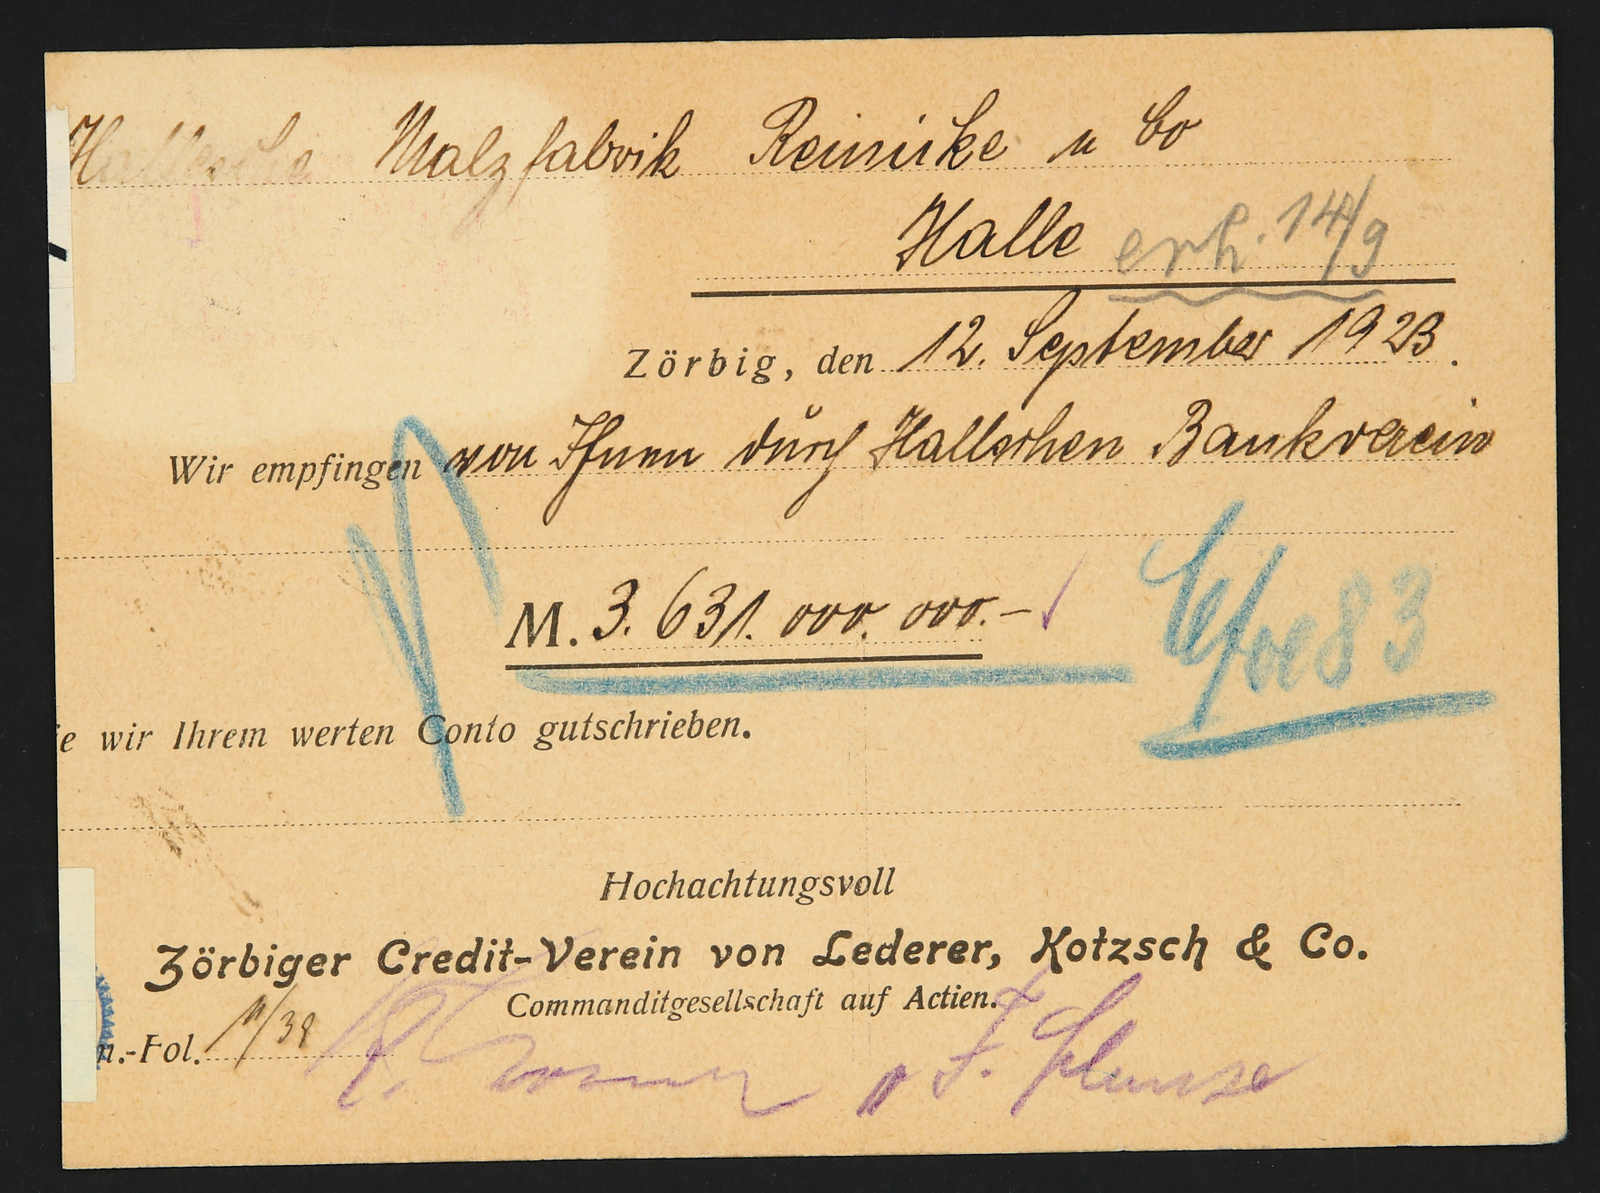 Hallesche Malzfabrik Reinicke u Co
Halle erh. 14/9
Zörbig, den 12. September 1923.
Wir empfingen von Ihnen durch Halleschen Bankverein
M. 3.631.000.000.-
83
ie wir Ihrem werten Conto gutschrieben.
Hochachtungsvoll
Zörbiger Credit-Verein von Lederer, Kotzsch & Co.
Commanditgesellschaft auf Actien.
n.-Fol.